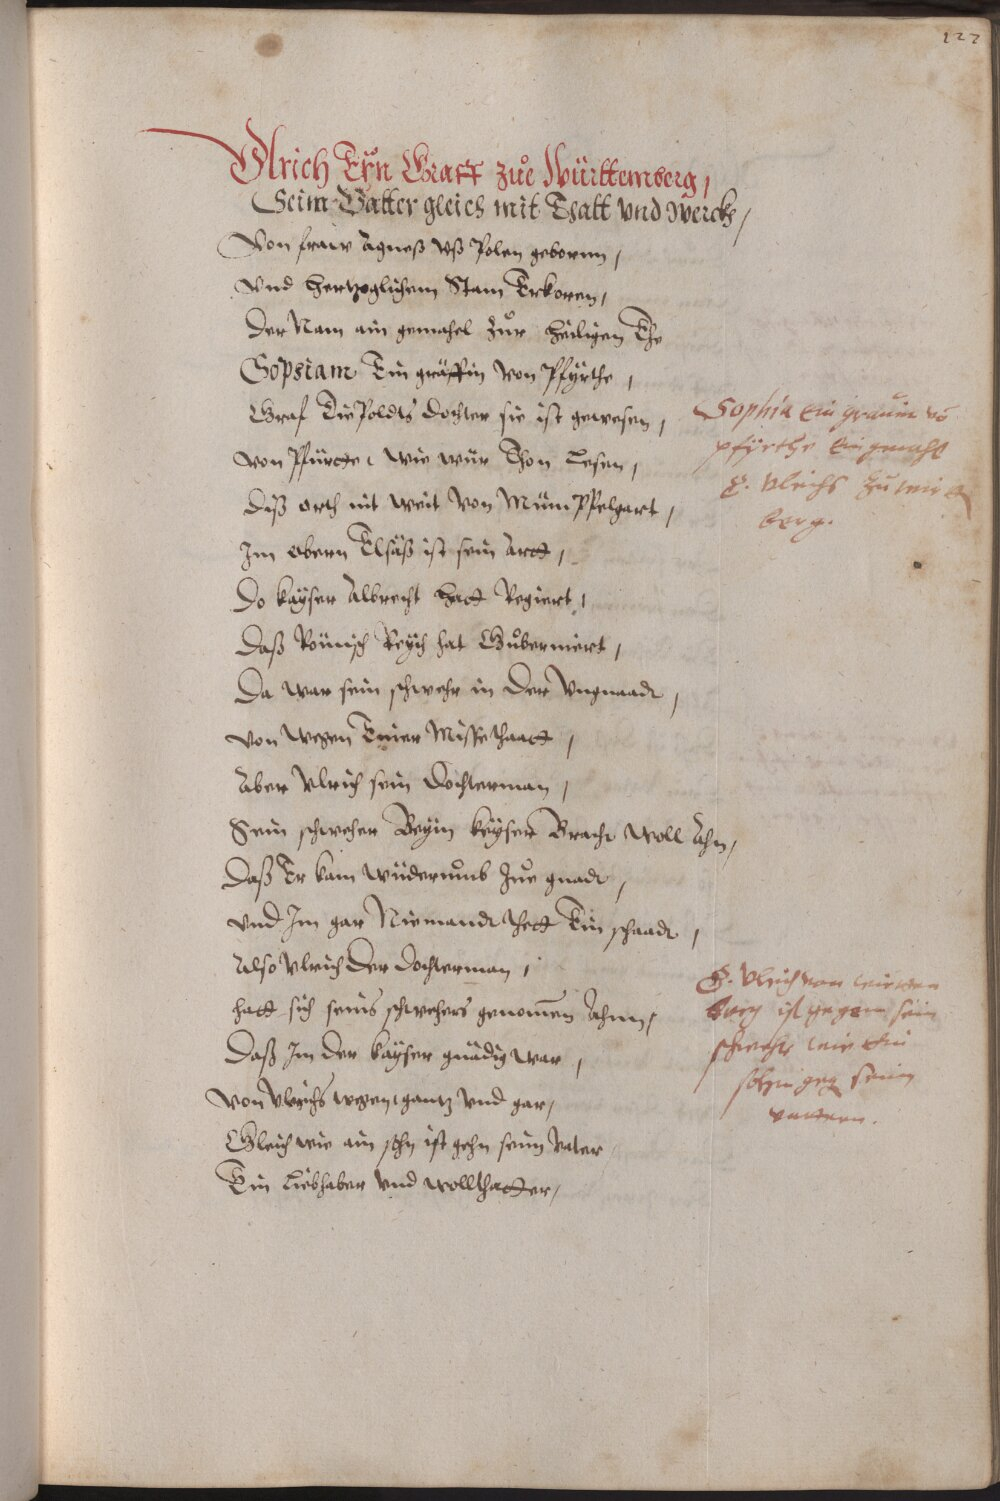 122
Ulrich Eyn Graff zue Württemberg,
Seim Vatter gleich mit Thatt und Werckh,
Von fraw Agneß uß Polen geborenn,
Und hertzoglichem Stam Erkoren,
Der Nam ain gemahel zur heiligen Ehe
Sophiam Ein gräffin von Pfyrthe,
Graf Diepoldts dochter sie ist gewesen,
Von Pfürtte, wie wür Thon Lesen,
Diß orth nit weit von Mümppelgart,
Im obern Elsäß ist sein Artt,
Do kayser Albrecht hatt Regiert,
Daß Römisch Reych hat Guberniert,
Da war sein schweher in der Ungnaadt,
von wegen Einer Missethaatt,
Aber Ulrich sein dochterman,
Sein schweher Beym keyser Bracht woll Ahn,
Daß Er kam wüderumb zue gnadt,
und Im gar Niemandt thett Ein schaadt,
Also Ulrich der dochterman,
hatt sich seins schwehers genomen Ahnn,
Daß Im der kayser gnädig war,
von Ulrichs wegen gantz und gar,
Gleich wie ain sohn ist gehn seim vater
Ein Liebhaber und wollthatter,
Sophia ein gräuin vo
pfyrthe ein gmahl
G. Ulrichs zu wirt
berg.
G. Ulrich von wirten
berg ist gegem sein
schweher wie ein
sohn geg seim
vattern.